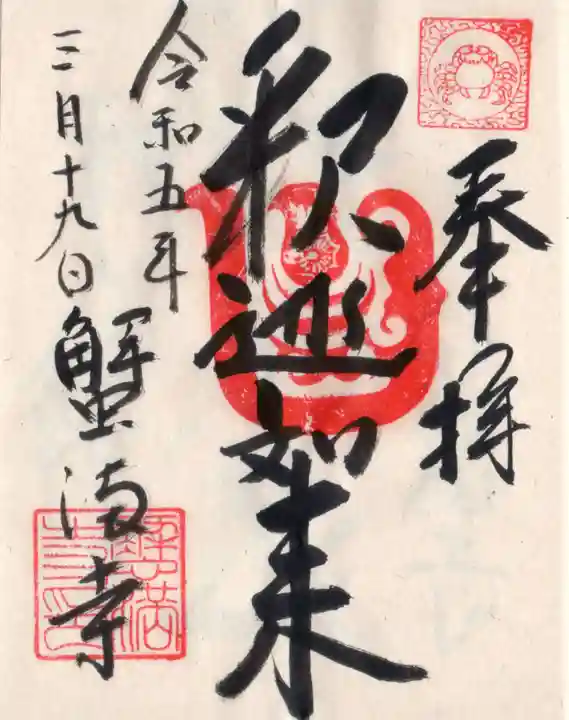 奉拝
釈迦如来
令和五年
三月十九日
蟹満寺